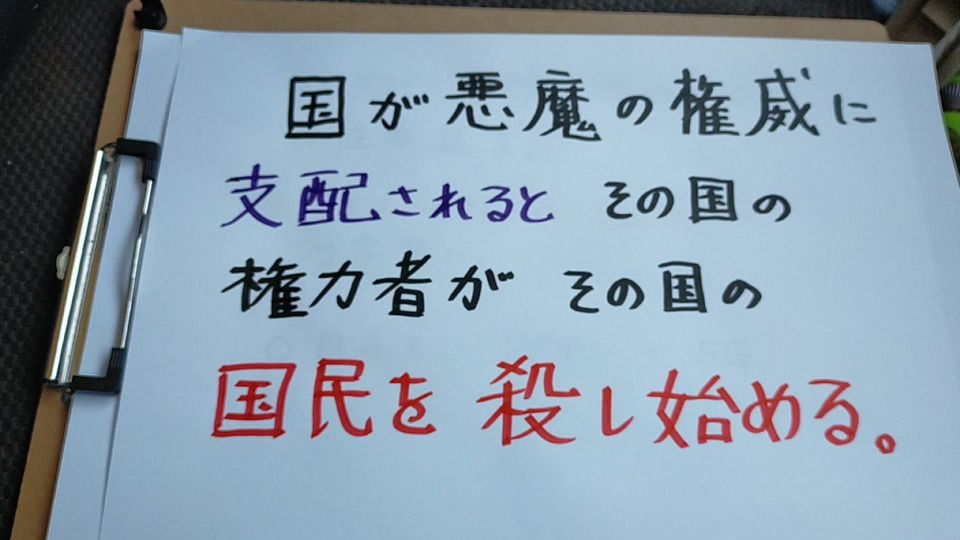 国が悪魔の権威に
支配されると その国の
権力者が その国の
国民を 殺し始める。